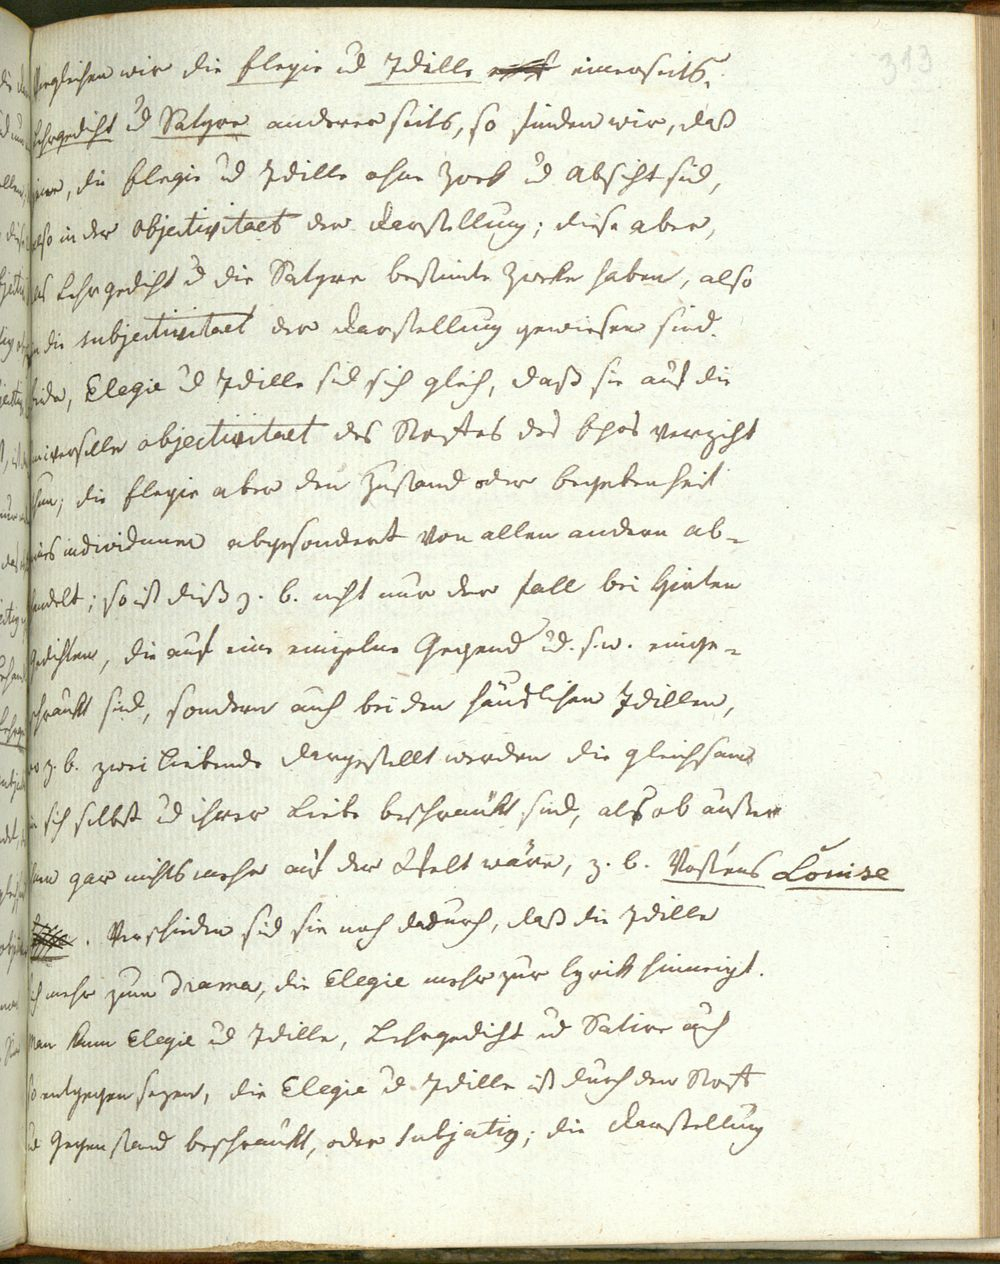 313
Vergleichen wir die Elegie ud Idille einerseits,
Lehrgedicht ud Satyre anderer seits, so finden wir, daß
jene, die Elegie ud Idille ohne Zwek ud Absicht sid,
also in der objectivitaet der Darstellung; diese aber,
das Lehrgedicht ud die Satyre bestimte Zweke haben, also
in die subjectivitaet der Darstellung gewiesen sind.
beide, Elegie ud Idille sid sich gleich, daß sie auf die
universelle objectivitaet des Stoffes des Epos verzicht
thun; die Elegie aber den Zustand oder begebenheit
eines individuums abgesondert von allen andern ab-
handelt; so ist dieß z. b. nicht nur der fall bei Hirten
gedichten, die auf eine einzelne Gegend ud. s. w. einge-
schränkt sind, sondern auch bei den häuslichen Idillen,
wo z. b. zwei Liebende dargestellt werden die gleichsam
in sich selbst ud ihrer Liebe beschränkt sind, als ob außer
ihnen gar nichts mehr auf der Welt wäre, z. b. Voßens Louise
. Verschieden sid sie noch dadurch, daß die Idille
sich mehr zum Drama, die Elegie mehr zur lyrik hinneigt.
Man kann Elegie ud Idille, Lehrgedicht ud Satire auch
so entgegen sezen, die Elegie ud Idille ist durch den Stoff
ud Gegenstand beschränkt, oder subjectiv; die Darstellung